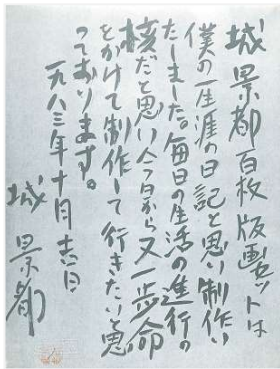 城景都百枚版画セットは
僕の一生涯の日記と思い制作い
たしました。毎日の生活の進行の
核だと思い今日から又一歩命
をかけて制作して行きたいと思
っております。
一九八三年十月吉日
城景都